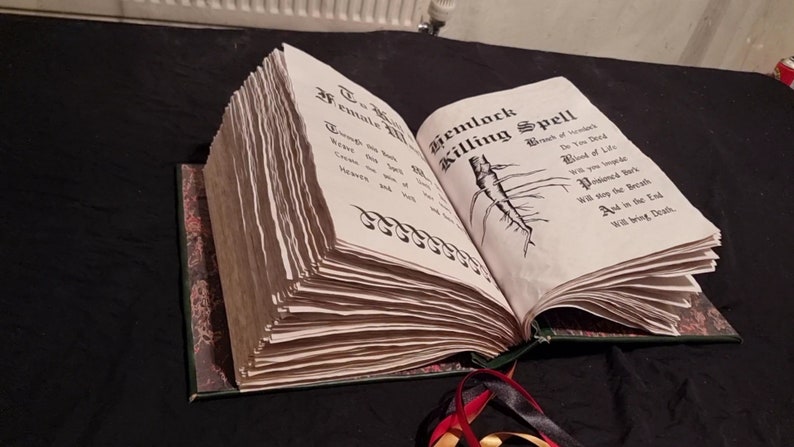 To
Female
Through this Book
Weave this Spell
Create the pain of
Heaven and Hell
Hemlock
Killing Spell
Branch of Hemlock
Do You Deed
Blood of Life
Will you Impede
Poisoned Bark
Will stop the Breath
And in the End
Will bring Death.